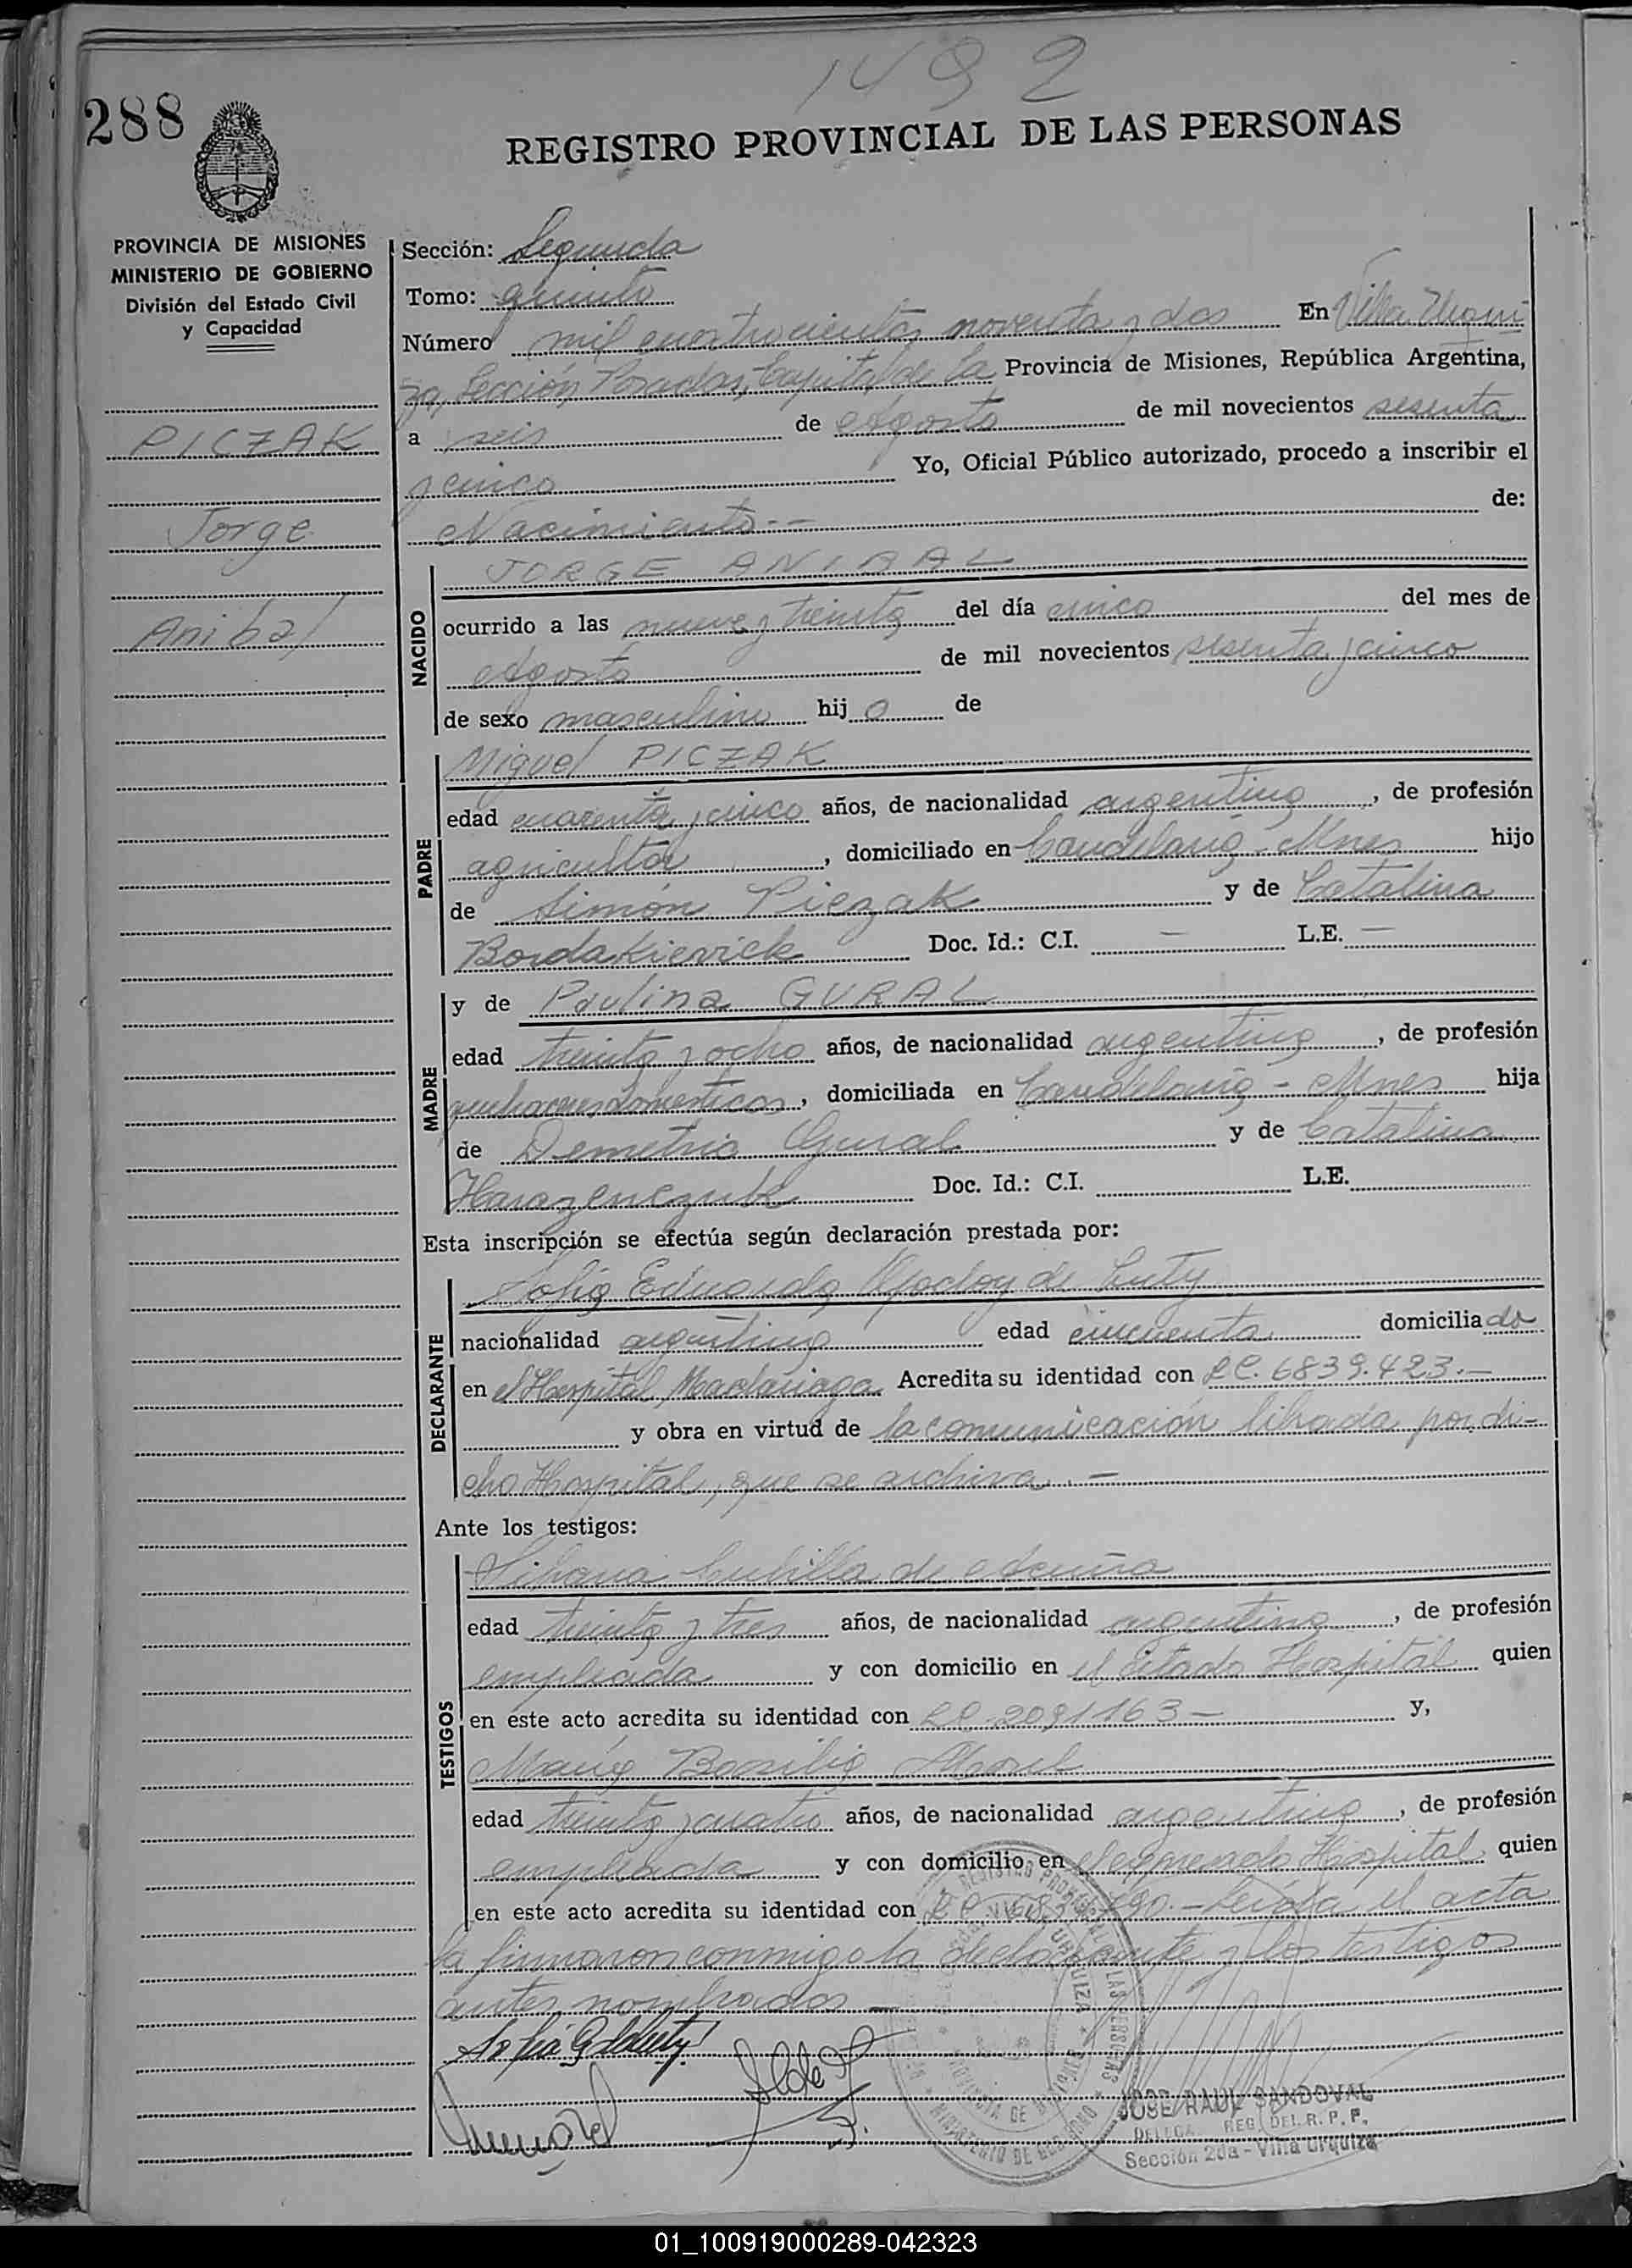 1492
288
REGISTRO PROVINCIAL DE LAS PERSONAS
PROVINCIA DE MISIONES
MINISTERIO DE GOBIERNO
División del Estado Civil
y Capacidad
PICZAK
Jorge
Anibal
Sección: Segunda
Tomo: quinto
Número mil cuatrocientos noventa y dos En Villa Urqui
za, Sección Posadas, Capital de la Provincia de Misiones, República Argentina,
a seis de Agosto de mil novecientos sesenta
y cinco Yo, Oficial Público autorizado, procedo a inscribir el
Nacimiento-- de:
NACIDO
JORGE ANIBAL
ocurrido a las nueve y treinta del día cinco del mes de
Agosto de mil novecientos sesenta y cinco
de sexo masculino hijo de
PADRE
Miguel PICZAK
edad cuarenta y cinco años, de nacionalidad argentino, de profesión
agricultor, domiciliado en Candelaria - Mnes hijo
de Simón Piczak y de Catalina
Bordakievick Doc. Id.: C.I. — L.E. —
MADRE
y de Paulina GURAL
edad treinta y ocho años, de nacionalidad argentina, de profesión
quehaceres domesticos, domiciliada en Candelaria - Mnes hija
de Demetrio Gural y de Catalina
Harazenczuk Doc. Id.: C.I. L.E.
Esta inscripción se efectúa según declaración prestada por:
DECLARANTE
Sofia Eduarda Godoy de Luty
nacionalidad argentina edad cincuenta domiciliada
en el Hospital Madariaga Acredita su identidad con LC. 6839.423.-
y obra en virtud de la comunicación librada por di-
cho Hospital, que se archiva.-
Ante los testigos:
TESTIGOS
Cubilla de Acuña
edad treinta y tres años, de nacionalidad argentina, de profesión
empleada y con domicilio en el citado Hospital quien
en éste acto acredita su identidad con LC. 2091163- y,
María Basilia Morel
edad treinta y cuatro años, de nacionalidad argentina, de profesión
empleada y con domicilio en el expresado Hospital quien
en este acto acredita su identidad con LC. Leída el acta
la firmaron conmigo la declarante y los testigos
antes nombrados —
REGISTRO PROVINCIAL DE LAS PERSONAS
URQUIZA
MINISTERIO DE GOBIERNO
JOSE RAUL SANDOVAL
REG. DEL R. P. P.
Sección 2da - Villa Urquiza
01_100919000289-042323